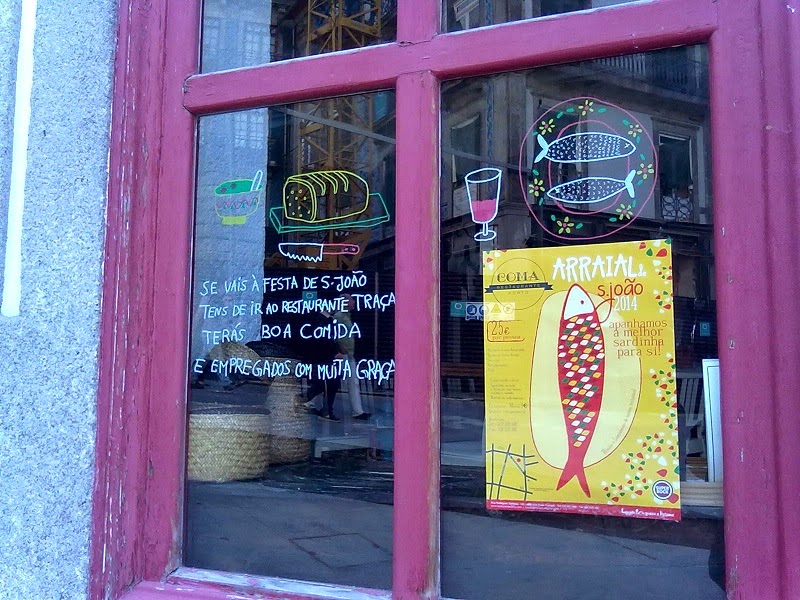 SE VAIS À FESTA DE S-JOÃO
TENS DE IR AO RESTAURANTE TRAÇA
TERÁS BOA COMIDA
E EMPREGADOS COM MUITA GRAÇA
COMA
RESTAURANTE
ARRAIAL de
S. joão
2014
25€
por pessoa
apanhamos
a melhor
sardinha
para si!
SUPER
BOCK